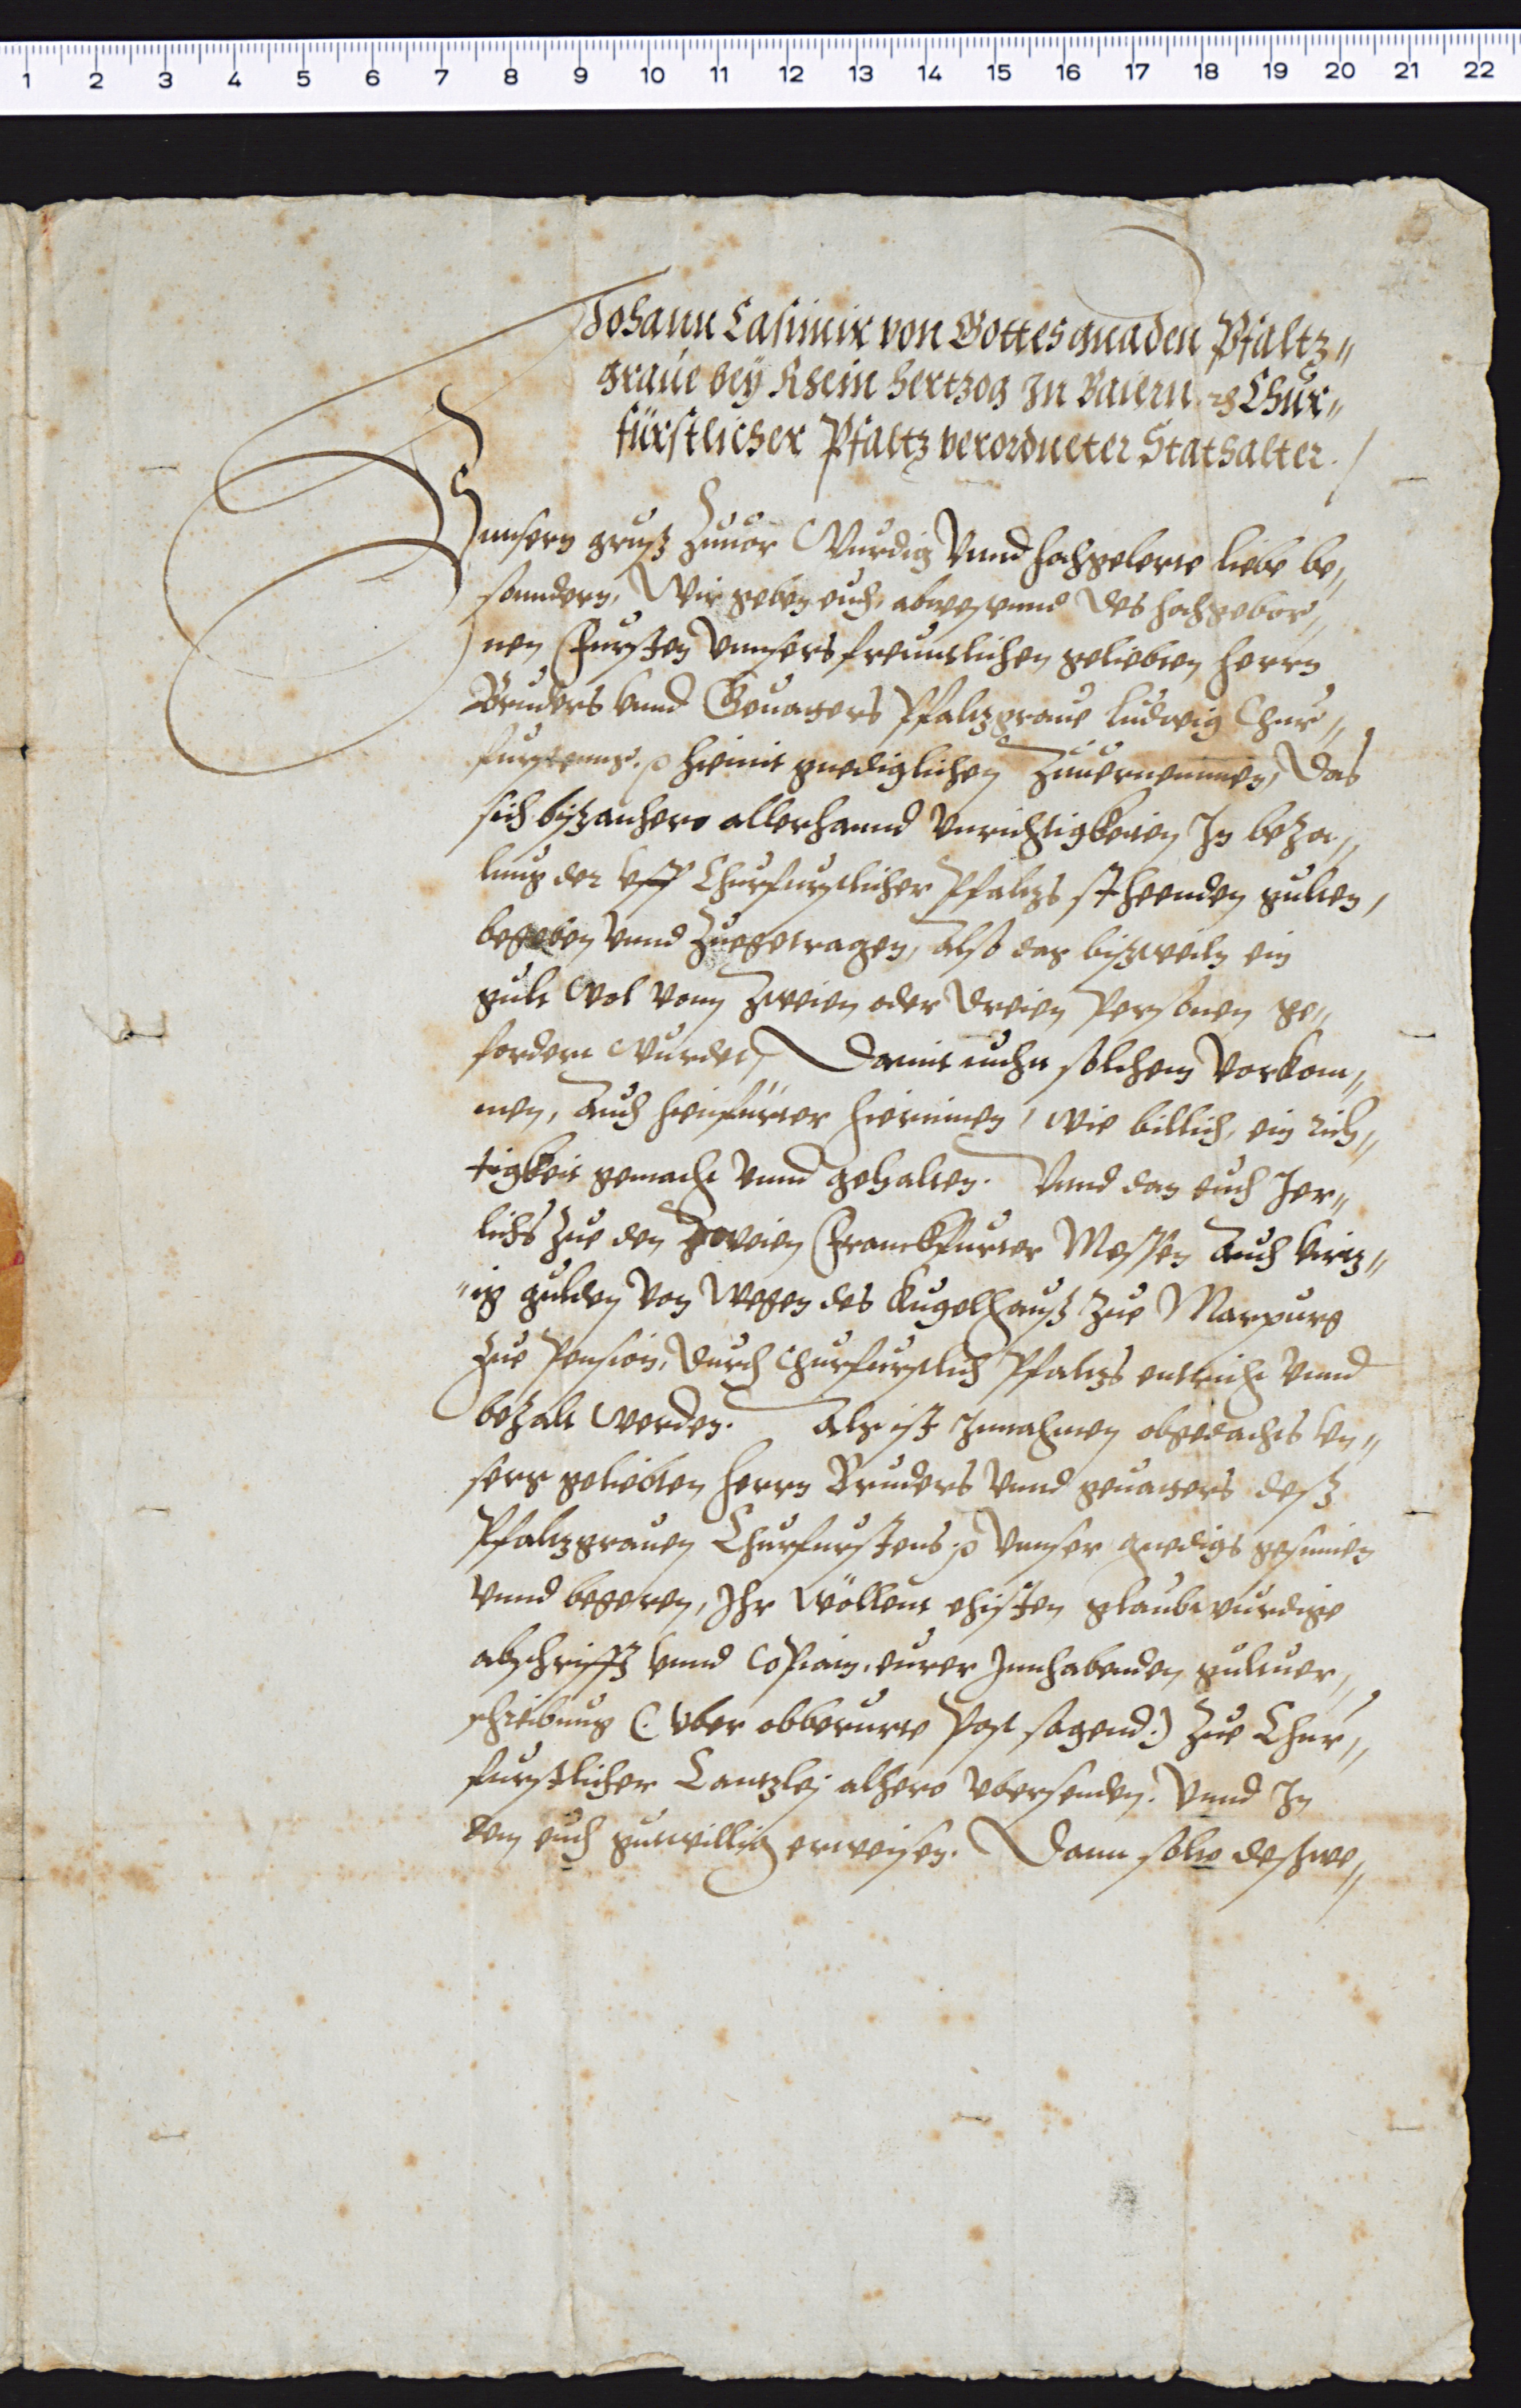 1 2 3 4 5 6 7 8 9 10 11 12 13 14 15 16 17 18 19 20 21 22
Johann Casimir von Gottes gnaden Pfaltz„
graue bey Rhein Hertzog In Baiern ꝛc Chur„
fürstlicher Pfaltz verordneter Stathalter.
Vnnsern gruß zuuor Wurdig Vnnd hochgelerte liebe be„
sonndern, Wir geben euch, abwesennd des hochgebor„
nen Fursten Vnnsers freuntlichen geliebten herrn
Bruders vnnd Geuatters Pfaltzgraue Ludwig Chur„
furstenns. ꝛc hiemit gnediglichen Zuuernemmen, Das
sich bißanhero allerhannd Vnrichtigkeiten In beza„
lung der vff Churfurstlicher Pfaltzs stheenden gulten,
begeben vnnd Zugetragen, Also das bißweiln ein
gult Wol vonn Zweien oder Dreien Personen ge„
fordert Wurdet, Damit nuhn solchem Vorkom„
men, Auch hienfürter hierinnen, Wie billich, ein rich„
tigkeit gemacht vnnd gehalten. Vnnd dan euch Jer„
lichs Zue den Zweien Franckfurter Messen Auch viertz„
„ig gulden Von Wegen des Kugelhauß Zue Marpurg
Zue Pension, Durch Churfurstlich Pfaltzs entricht Vnnd
bezalt Werden. Als ist Innahmen obgedachts vn„
sers geliebten herrn Bruders Vnnd geuatters deß
Pfaltzgrauen Churfurstens ꝛc Vnnser gnedigs gesinnen
Vnnd begeren, Ihr Wöllent ehisten glaubwurdige
abschrifft vnnd Copiam, eurer Innhabenden gultuer„
schreibung (: vber obberurte Post sagend:) Zue Chur„
furstlicher Cantzlej alhero vbersenden. Vnnd In
dem euch gutwillig erweisen. Dann solte deßwe„